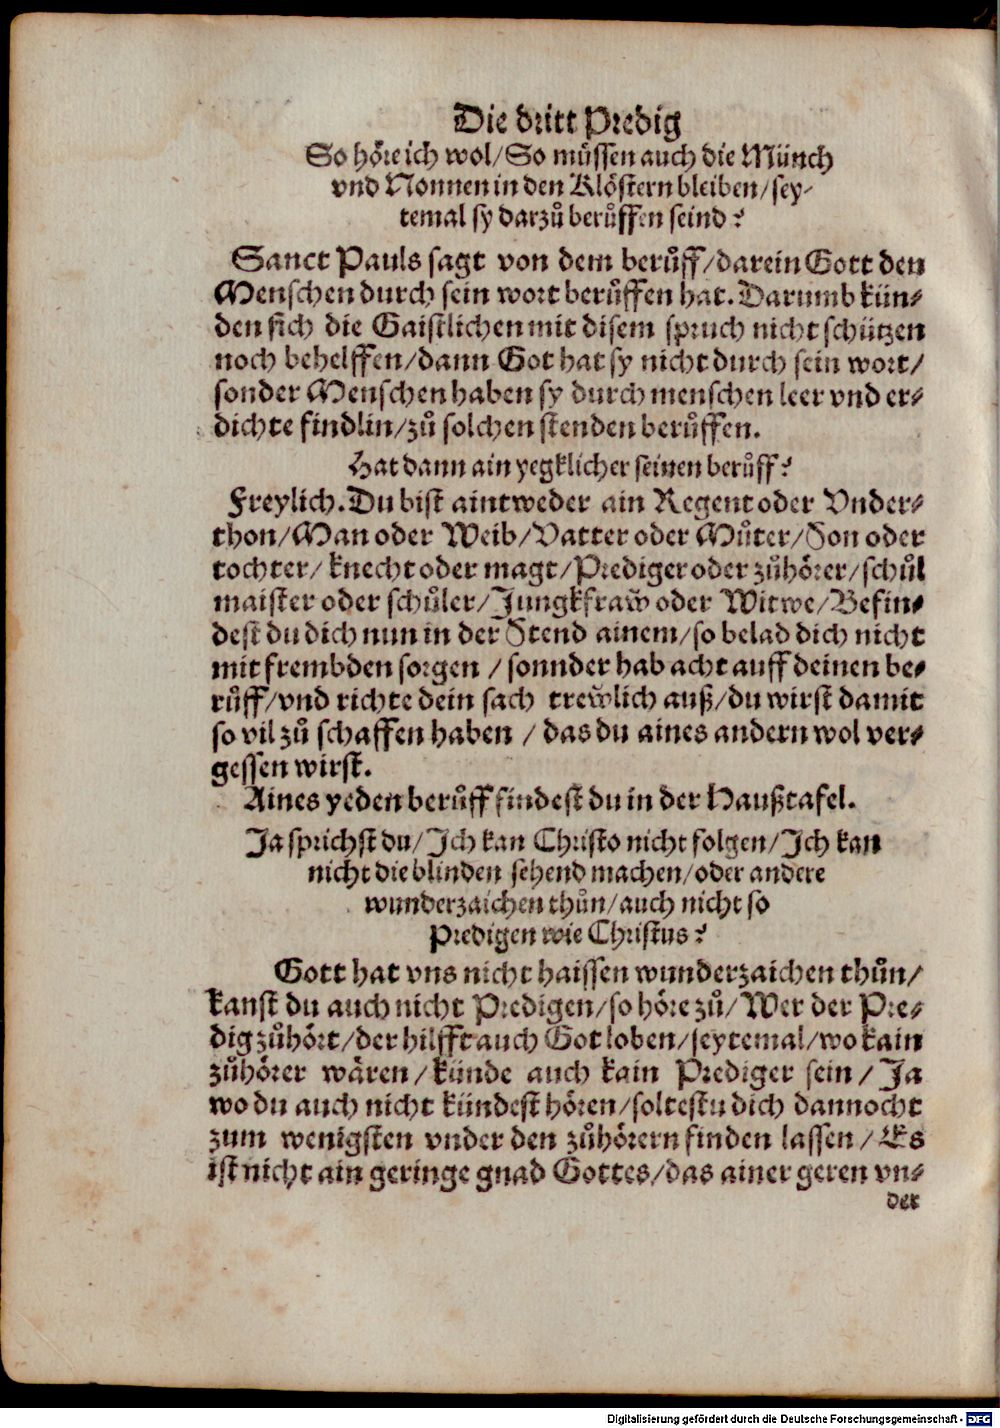 Die dritt Predig
So höre ich wol/So müssen auch die Münch
vnd Nonnen in den Klöstern bleiben/sey-
temal sy darzů berůffen seind?
Sanct Pauls sagt von dem berůff/darein Gott den
Menschen durch sein wort berůffen hat. Darumb kün-
den sich die Gaistlichen mit disem spruch nicht schützen
noch behelffen/dann Got hat sy nicht durch sein wort/
sonder Menschen haben sy durch menschen leer vnd er-
dichte findlin/zů solchen stenden berůffen.
Hat dann ain yegklicher seinen berůff?
Freylich. Du bist aintweder ain Regent oder Vnder-
thon/Man oder Weib/Vatter oder Můter/Son oder
tochter/knecht oder magt/Prediger oder zůhörer/schůl
maister oder schůler/Jungkfraw̆ oder Witwe/Befin-
dest du dich nun in der Stend ainem/so belad dich nicht
mit frembden sorgen/sonnder hab acht auff deinen be-
růff/vnd richte dein sach trew̆lich auß/du wirst damit
so vil zů schaffen haben/das du aines andern wol ver-
gessen wirst.
Aines yeden berůff findest du in der Haußtafel.
Ja sprichst du/Ich kan Christo nicht folgen/Ich kan
nicht die blinden sehend machen/oder andere
wunderzaichen thůn/auch nicht so
Predigen wie Christus?
Gott hat vns nicht haissen wunderzaichen thůn/
kanst du auch nicht Predigen/so höre zů/Wer der Pre-
dig zůhört/der hilfft auch Got loben/seytemal/wo kain
zůhörer wären/künde auch kain Prediger sein/Ja
wo du auch nicht kündest hören/soltestu dich dannocht
zum wenigsten vnder den zůhörern finden lassen/Es
ist nicht ain geringe gnad Gottes/das ainer geren vn-
der
Digitalisierung gefördert durch die Deutsche Forschungsgemeinschaft - DFG